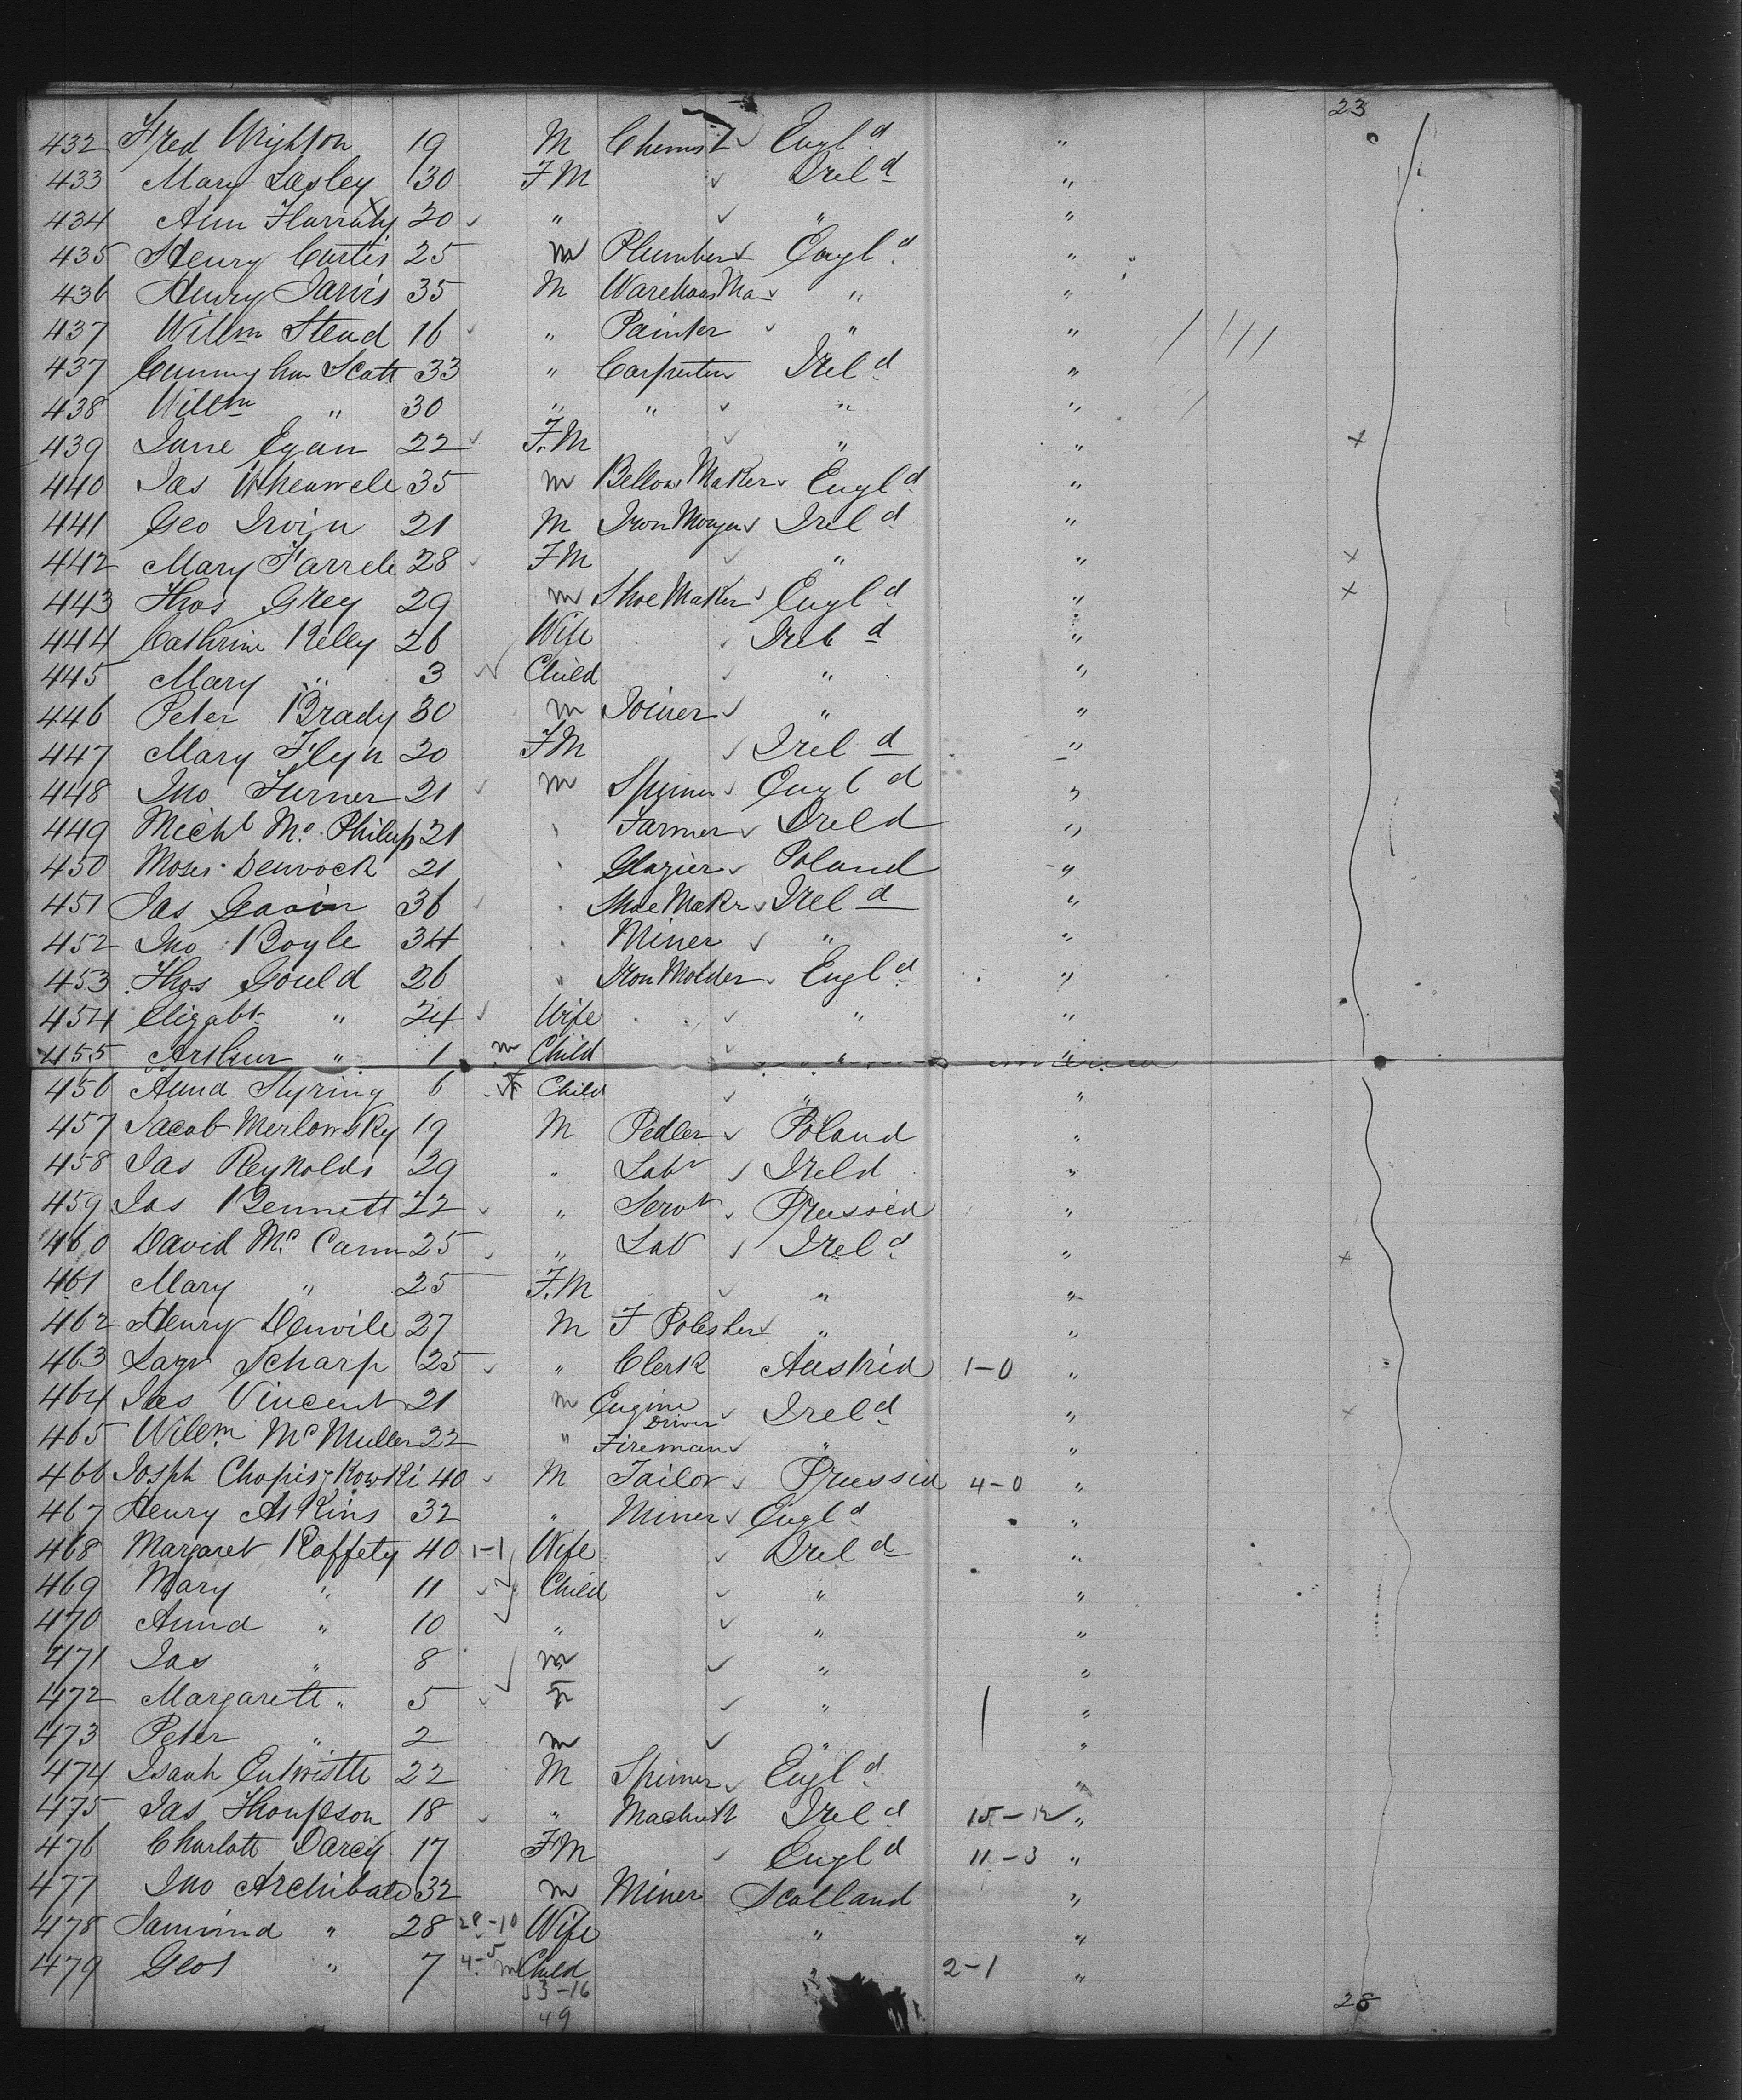 23
432 Fred Wrighton 19 M Chemist Engl.d "
433 Mary Lasley 30 F M Irel d "
434 Ann Harraty 20 " " "
435 Henry Curtis 25 m Plumber Engl.d "
436 Henry Jarvis 35 M Warehous Ma " "
437 Willm Stead 16 " Painter " "
437 Cunnyhm Scott 33 " Carpenter Irel d "
438 Willm " 30 " " " "
439 Jane Egan 22 F.M " "
440 Jas Wheawele 35 m Bellow Maker Engl d "
441 Geo Irvin 21 M Iron Monger Irel d "
442 Mary Farrele 28 F M " "
443 Thos Grey 29 m Shoe Maker Engl d "
444 Cathrine Kelly 26 Wife Irel d "
445 Mary " 3 Child " "
446 Peter Brady 30 m Joiner " "
447 Mary Flyn 20 F M Irel d "
448 Jno Turner 21 m Spinner Engl d "
449 Michl Mc Philip 21 Farmer Ireld "
450 Moses 21 Glazier Poland "
451 Jas Gavin 36 Shoe Makr Irel d "
452 Jno Boyle 34 Miner " "
453 Thos Gould 26 " Iron Molder Engl d "
454 Elizabt " 24 Wife " "
455 Arthur " 1 m Child " "
456 Anna Styring 6 F Child " "
457 Jacob Merlowsky 19 M Pedler Poland "
458 Jas Reynolds 29 " Labr Ireld "
459 Jas Bennett 22 " Servt Prussia "
460 David Mc Cann 25 " Lab Irel d "
461 Mary " 25 F.M " "
462 Henry Denvile 27 M F Polisher " "
463 Lazr Scharp 25 " Clerk Austria 1-0 "
464 Jas Vincent 21 m Engine Driver Irel d "
465 Wilem Mc Mullen 22 " Fireman " "
466 Josph Chopiszkowski 40 M Tailor Prussia 4-0 "
467 Henry Atkins 32 " Miner Engl d "
468 Margaret Raffety 40 1-1 Wife Irel d "
469 Mary " 11 Child " "
470 Anna " 10 " " "
471 Jas " 8 m " "
472 Margarett " 5 F " "
473 Peter " 2 m " "
474 Isaah Entwistle 22 M Spinner Engl d "
475 Jas Thompson 18 " Machnst Irel d 15-12 "
476 Charlott Darcy 17 F M Engl d 11-3 "
477 Jno Archibald 32 m Miner Scotland "
478 " 28 28-10 Wife " "
479 Geo " 7 4-5 m Child " 2-1 "
33-16
49
28